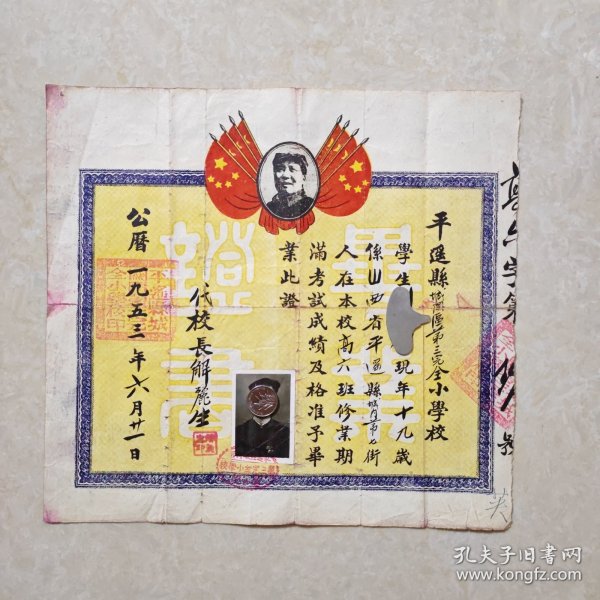 平遥縣城關區第三完全小學校
學生 現年十九歲
係山西省平遥縣城内第七街
人在本校高六班修業期
滿考試成績及格准予畢
業此證
代校長解麗生
公曆一九五三年六月廿一日
畢業
證書
高小字第
號
英
孔夫子旧书网
www.kongfz.com